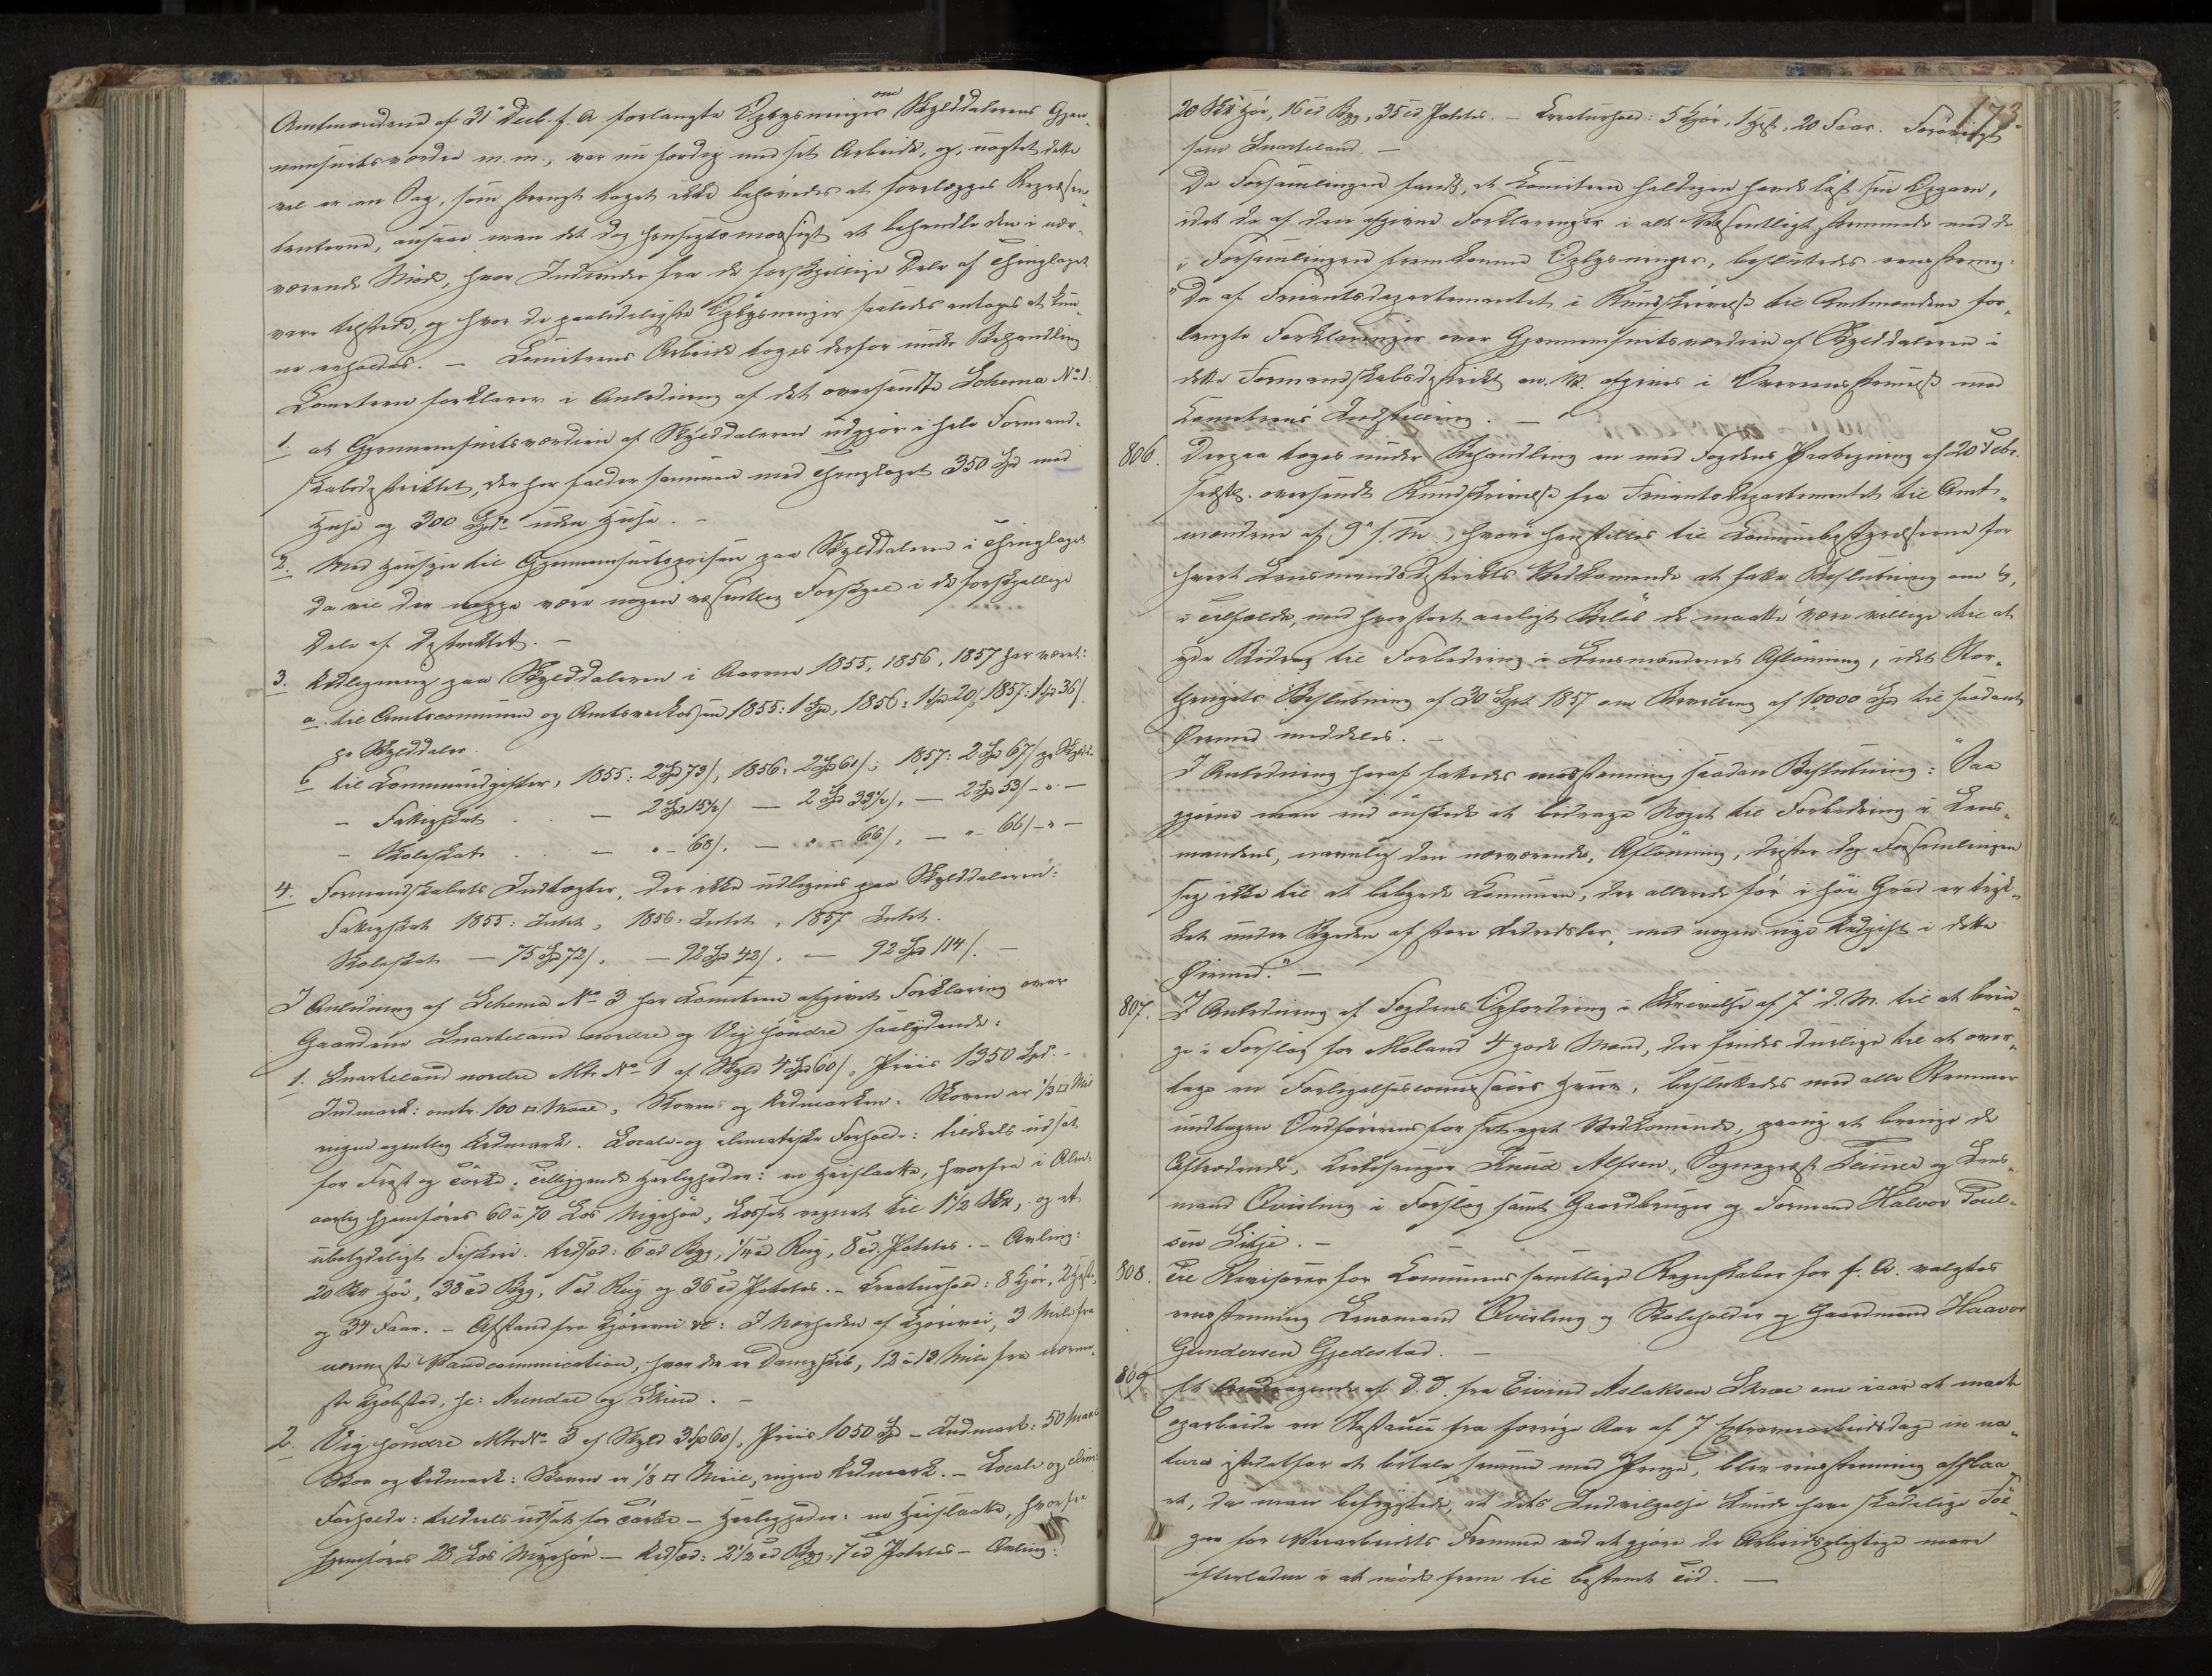 Amtmændene af 31te Decb. f. A. forlangte Oplysninger om Skylddalerens Gjen-
nemsnitsværdie m. m., var nu færdig med sit Arbeide, og, uagtet dette
vel er en Sag, som strengt taget ikke behøvedes at forelægges Repræsen-
tanterne, ansaae man det dog hensigtsmæssigt at behandle den i nær-
værende Møde, hvor Indvaanere fra de forskjellige Dele af Thinglaget
vare tilstede, og hvor de paalideligste Oplysninger saaledes antoges at kun-
ne erholdes. – Comiteens Arbeide toges derfor under Behandling
Comiteen forklarer i Anledning af det oversendte Schema No 1:
1. at Gjennemsnitsværdien af Skylddaleren udgjør i hele Formand-
skabsdistriktet, der her falder sammen med Thinglaget 350 Spd med
Huse og 300 Spd uden Huse. –
2. Med Hensyn til Gjennemsnitsprisen paa Skylddaleren i Thinglaget
da vil der neppe være nogen væsentlig Forskjel i de forskjellige
Dele af Distriktet. –
3. Udligning paa Skylddaleren i Aarene 1855, 1856, 1857 har været:
a. til Amtscommunen og Amtsveikassen 1855: 1 Spd, 1856: 1 Spd 20 s, 1857: 1 Spd 36 s
pr Skylddaler.
b til Communeudgifter, 1855: 2 Spd 73 s, 1856: 2 Spd 61 s; 1857: 2 Spd 67 s pr Skyldd.
– Fattigskat . . – 2 Spd 15½ s – 2 Spd 33½ s, – 2 Spd 53 s – " –
– Skoleskat . . – " – 68 s. – " – 66 s, – " – 66 s – " –
4. Formandskabets Indtægter, der ikke udlignes paa Skylddaleren:
Fattigskat 1855: Intet, 1856: Intet, 1857 Intet.
Skoleskat – 75 Spd 72 s, – 92 Spd 42 s, – 92 Spd 114 s. –
I Anledning af Schema No 3 har Comiteen afgivet Forklaring over
Gaardene Snarteland nordre og Vig søndre saalydende:
1. Snarteland nordre Mtr No 1 af Skyld 4 Spd 60 s, Priis 1350 Spd. –
Indmark: omtr. 100 □ Maal, Skoven og Udmarken. Skoven er 1/3 □ Miil
ingen egentlig Udmark. Locale- og climatiske Forholde: tildeels udsat
for Frost og Tørke. Tilliggende Herligheder: en Heislaatte, hvorfra i Alm.
aarlig hjemføres 60 à 70 Læs Myrhøe, Læsset regnet til 1½ Sk℔, og et
ubetydeligt Fiskeri. Udsæd: 6 Td Byg, ¼ Td Rug, 8 Td. Potetes. – Avling:
20 Sk℔ Høe, 38 Td Byg, 1 Td. Rug og 36 Td Potetes. – Creaturhold: 8 Kjør, 2 Heste,
og 34 Faar. – Afstand fra Kjørevei &c: I Nærheden af Kjørevei, 3 Mile fra
nærmeste Vandcommunication, hvor der er Dampskib, 12 à 13 Mile fra nærme-
ste Kjøbstad, sc: Arendal og Skien. –
2. Vig søndre Mtr No 3 af Skyld 3 Spd 60 s, Priis 1050 Spd – Indmark: 50 Maal
Skov og Udmark: Skoven er 1/8 □ Miil, ingen Udmark. – Locale og clim:
Forholde: tildeels udsat for Tørke – Herligheder: en Heislaatte, hvorfra
hjemføres 28 Læs Myrhøe – Udsæd: 2½ Td Byg, 7 Td Potetes – Avling:
173
20 Sk℔ Høe, 16 Td Byg, 35 Td Potetes. – Creaturhold: 5 Kjør, 1 Hest, 20 Faar. Forøvrigt
som Snarteland. –
Da Forsamlingen fandt, at Comiteen heldigen havde løst sin Opgave,
idet de af den afgivne Forklaringer i alt Væsentligt stemmede med de
i Forsamlingen fremkomne Oplysninger, besluttedes eenstemmig:
"De af Finantsdepartementet i Rundskrivelse til Amtmændene for-
langte Forklaringer over Gjennemsnitsværdien af Skylddaleren i
dette Formandskabsdistrikt m. V. afgives i Overensstemmelse med
Comiteens Indstilling. –
806. Derpaa toges under Behandling en med Fogdens Paategning af 20 Febr.
sidstl. oversendt Rundskrivelse fra Finantsdepartementet til Amt-
mændene af 9de s. M., hvori henstilles til Communebestyrelserne for
hvert Lensmandsdistrikts Vedkommende at fatte Beslutning om og,
i Tilfælde, med hvor stort aarligt Beløb de maatte være villige til at
yde Bidrag til Forbedring i Lensmændenes Aflønning, idet Stor-
thingets Beslutning af 30 Sept. 1857 om Bevilling af 10000 Spd til saadant
Øiemed meddeles. –
I Anledning heraf fattedes eenstemmig saadan Beslutning: "Saa
gjerne man end ønskede at bidrage Noget til Forbedring i Lens-
mandens, navnlig den nærværende, Aflønning, drister dog Forsamlingen
sig ikke til at bebyrde Communen, der allerede før i høi Grad er tryk-
ket under Byrden af store Udredsler, med nogen nye Udgift i dette
Øiemed." –
807. I Anledning af Fogdens Opfordring i Skrivelse af 7de d. M. til at brin-
ge i Forslag for Moland 4 gode Mænd, der findes duelige til at over-
tage en Forligelsescommissairs Hverv, besluttedes med alle Stemmer
undtagen Ordførerens for sit eget Vedkommende, paany at bringe de
Aftrædende, Kirkesanger Knud Alfsen, Sogneprest Teisner og Lens-
mand Qvisling i Forslag samt Gaardbruger og Formand Halvor Poul-
sen Sitje. –
808. Til Revisorer for Communens samtlige Regnskaber for f. A. valgtes
eenstemmig Lensmand Qvisling og Skoleholder og Gaardmand Haavor
Gundersen Gjedestad. –
809 Et Andragende af D. D. fra Eivind Aslaksen Skree om isaar at maatte
oparbeide en Restance fra forrige Aar af 7 Extraveiarbeidsdage in na-
tura istedetfor at betale samme med Penge, blev eenstemmig afslaa-
et, da man befrygtede, at dets Indvilgelse kunde have skadelige Føl-
ger for Veiarbeidets Fremme ved at gjøre de Arbeidspligtige mere
efterladne i at møde frem til bestemt Tid. –